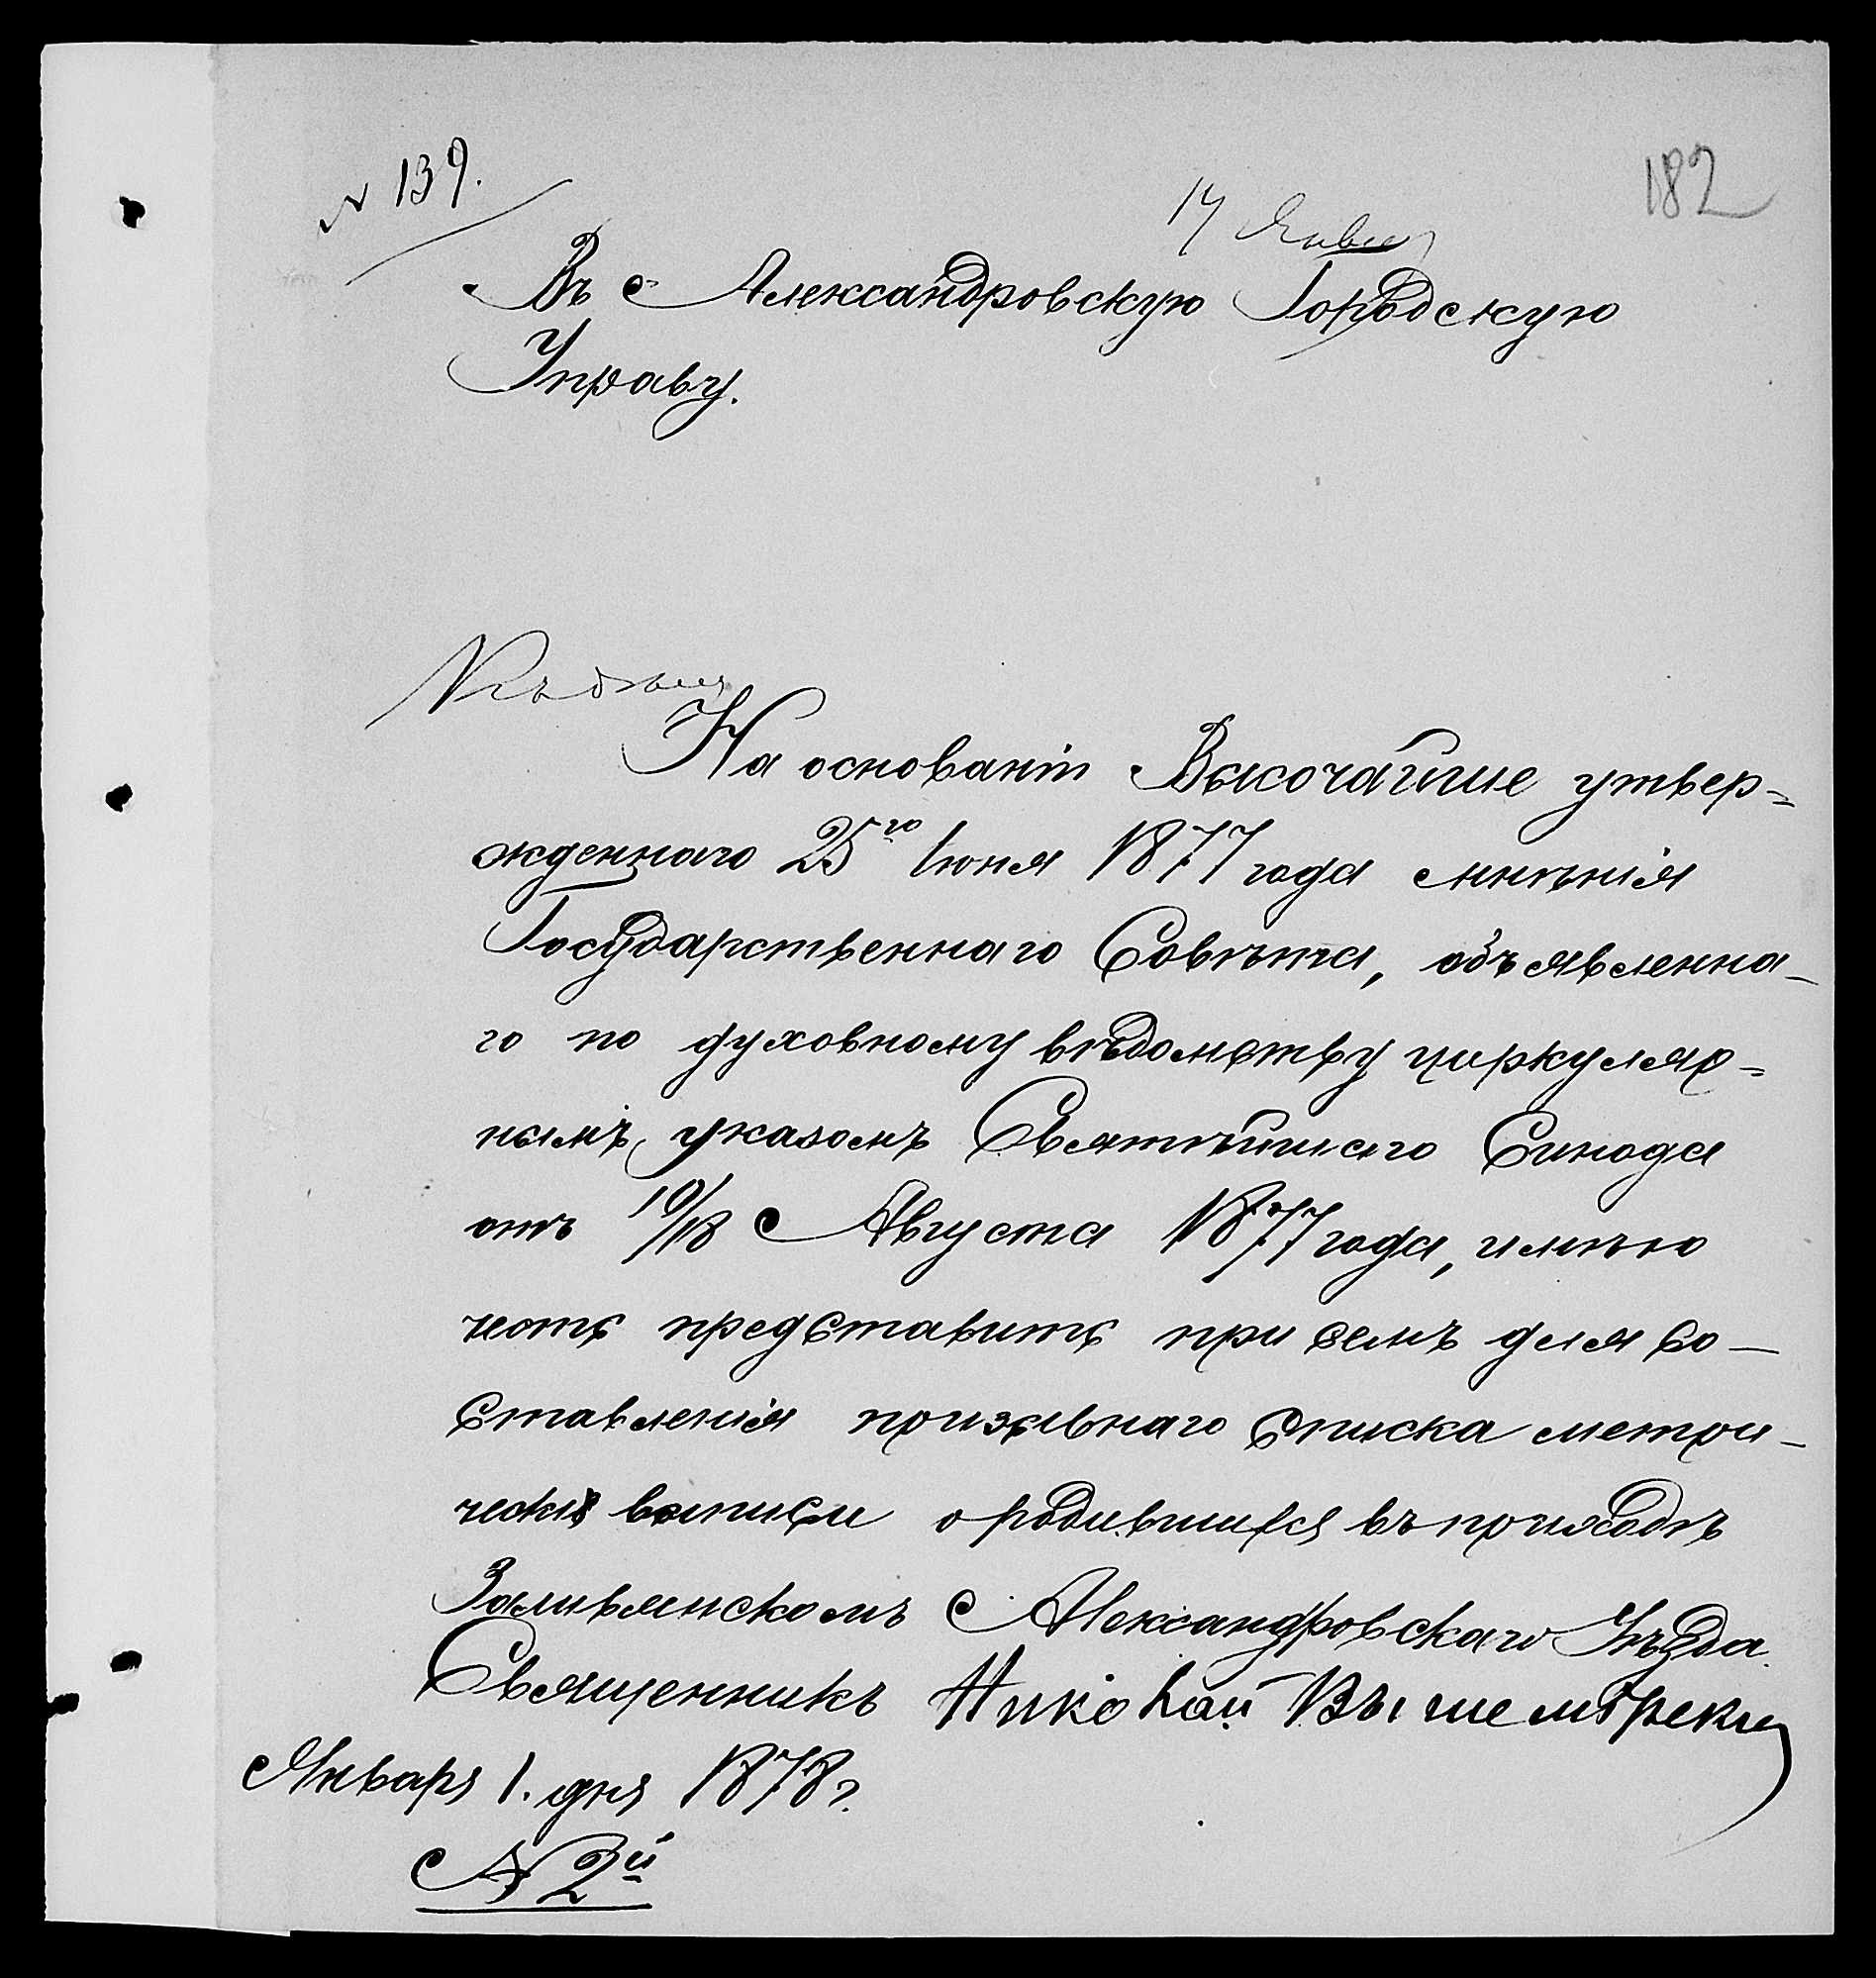 № 139.
182
17 Январ
Въ Александровскую Городскую
Управу.
Къ дѣлу
На основаніи Высочайше утвер=
жденнаго 25го Іюня 1877 года мнѣнія
Государственнаго Совѣта, объявленна-
го по духовному вѣдомству циркуляр=
нымъ указомъ Святѣйшаго Синода
отъ 10/18 Августа 1877 года, имѣю
честь представить при семъ для со-
ставленія призывнаго списка метри-
ческія выписи о родившихся въ приходѣ
Заливянскомъ Александровскаго Уѣзда.
Священникъ Николай
Января 1. дня 1878 г.
№ 2й